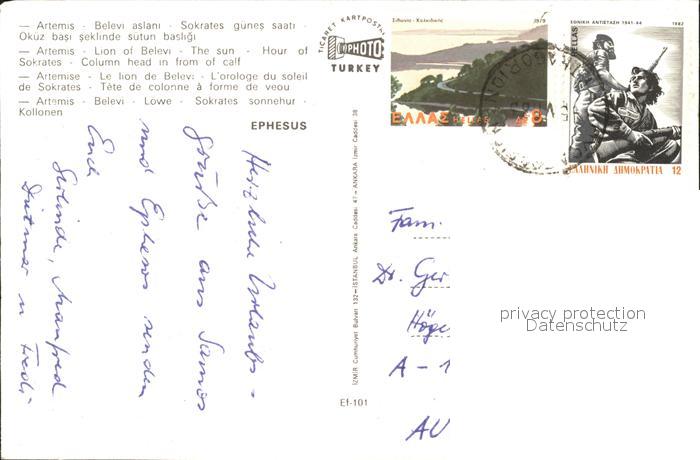 — Artemis - Belevi aslanı - Sokrates güneş saati -
Oküz başı şeklinde sütun baslığı
— Artemis - Lion of Belevi - The sun - Hour of
Sokrates - Column head in from of calf
— Artemise - Le lion de Belevi - L'orologe du soleil
de Sokrates - Tête de colonne à forme de veou
— Artemis - Belevi - Lowe - Sokrates sonnehur -
Kollonen
EPHESUS
Herzliche Urlaubs=
grüße aus Samos
und Ephesos senden
Euch
Gerlinde, Manfred
Dietmar u Fredi
TICARET KARTPOSTAL
PHOTO
TURKEY
IZMIR Cumhuriyet Bulvarı 132 — ISTANBUL Ankara Caddesi 47 — ANKARA Izmir Caddesi 38
Ef-101
Σιθωνία - Χαλκιδικής
1979
ΕΛΛΑΣ HELLAS ΔΡ 8
ΕΘΝΙΚΗ ΑΝΤΙΣΤΑΣΗ 1941-44 1982
HELLAS
ΕΛΛΗΝΙΚΗ ΔΗΜΟΚΡΑΤΙΑ 12
Fam.
Dr. Ger
Höge
A - 1
AU
privacy protection
Datenschutz